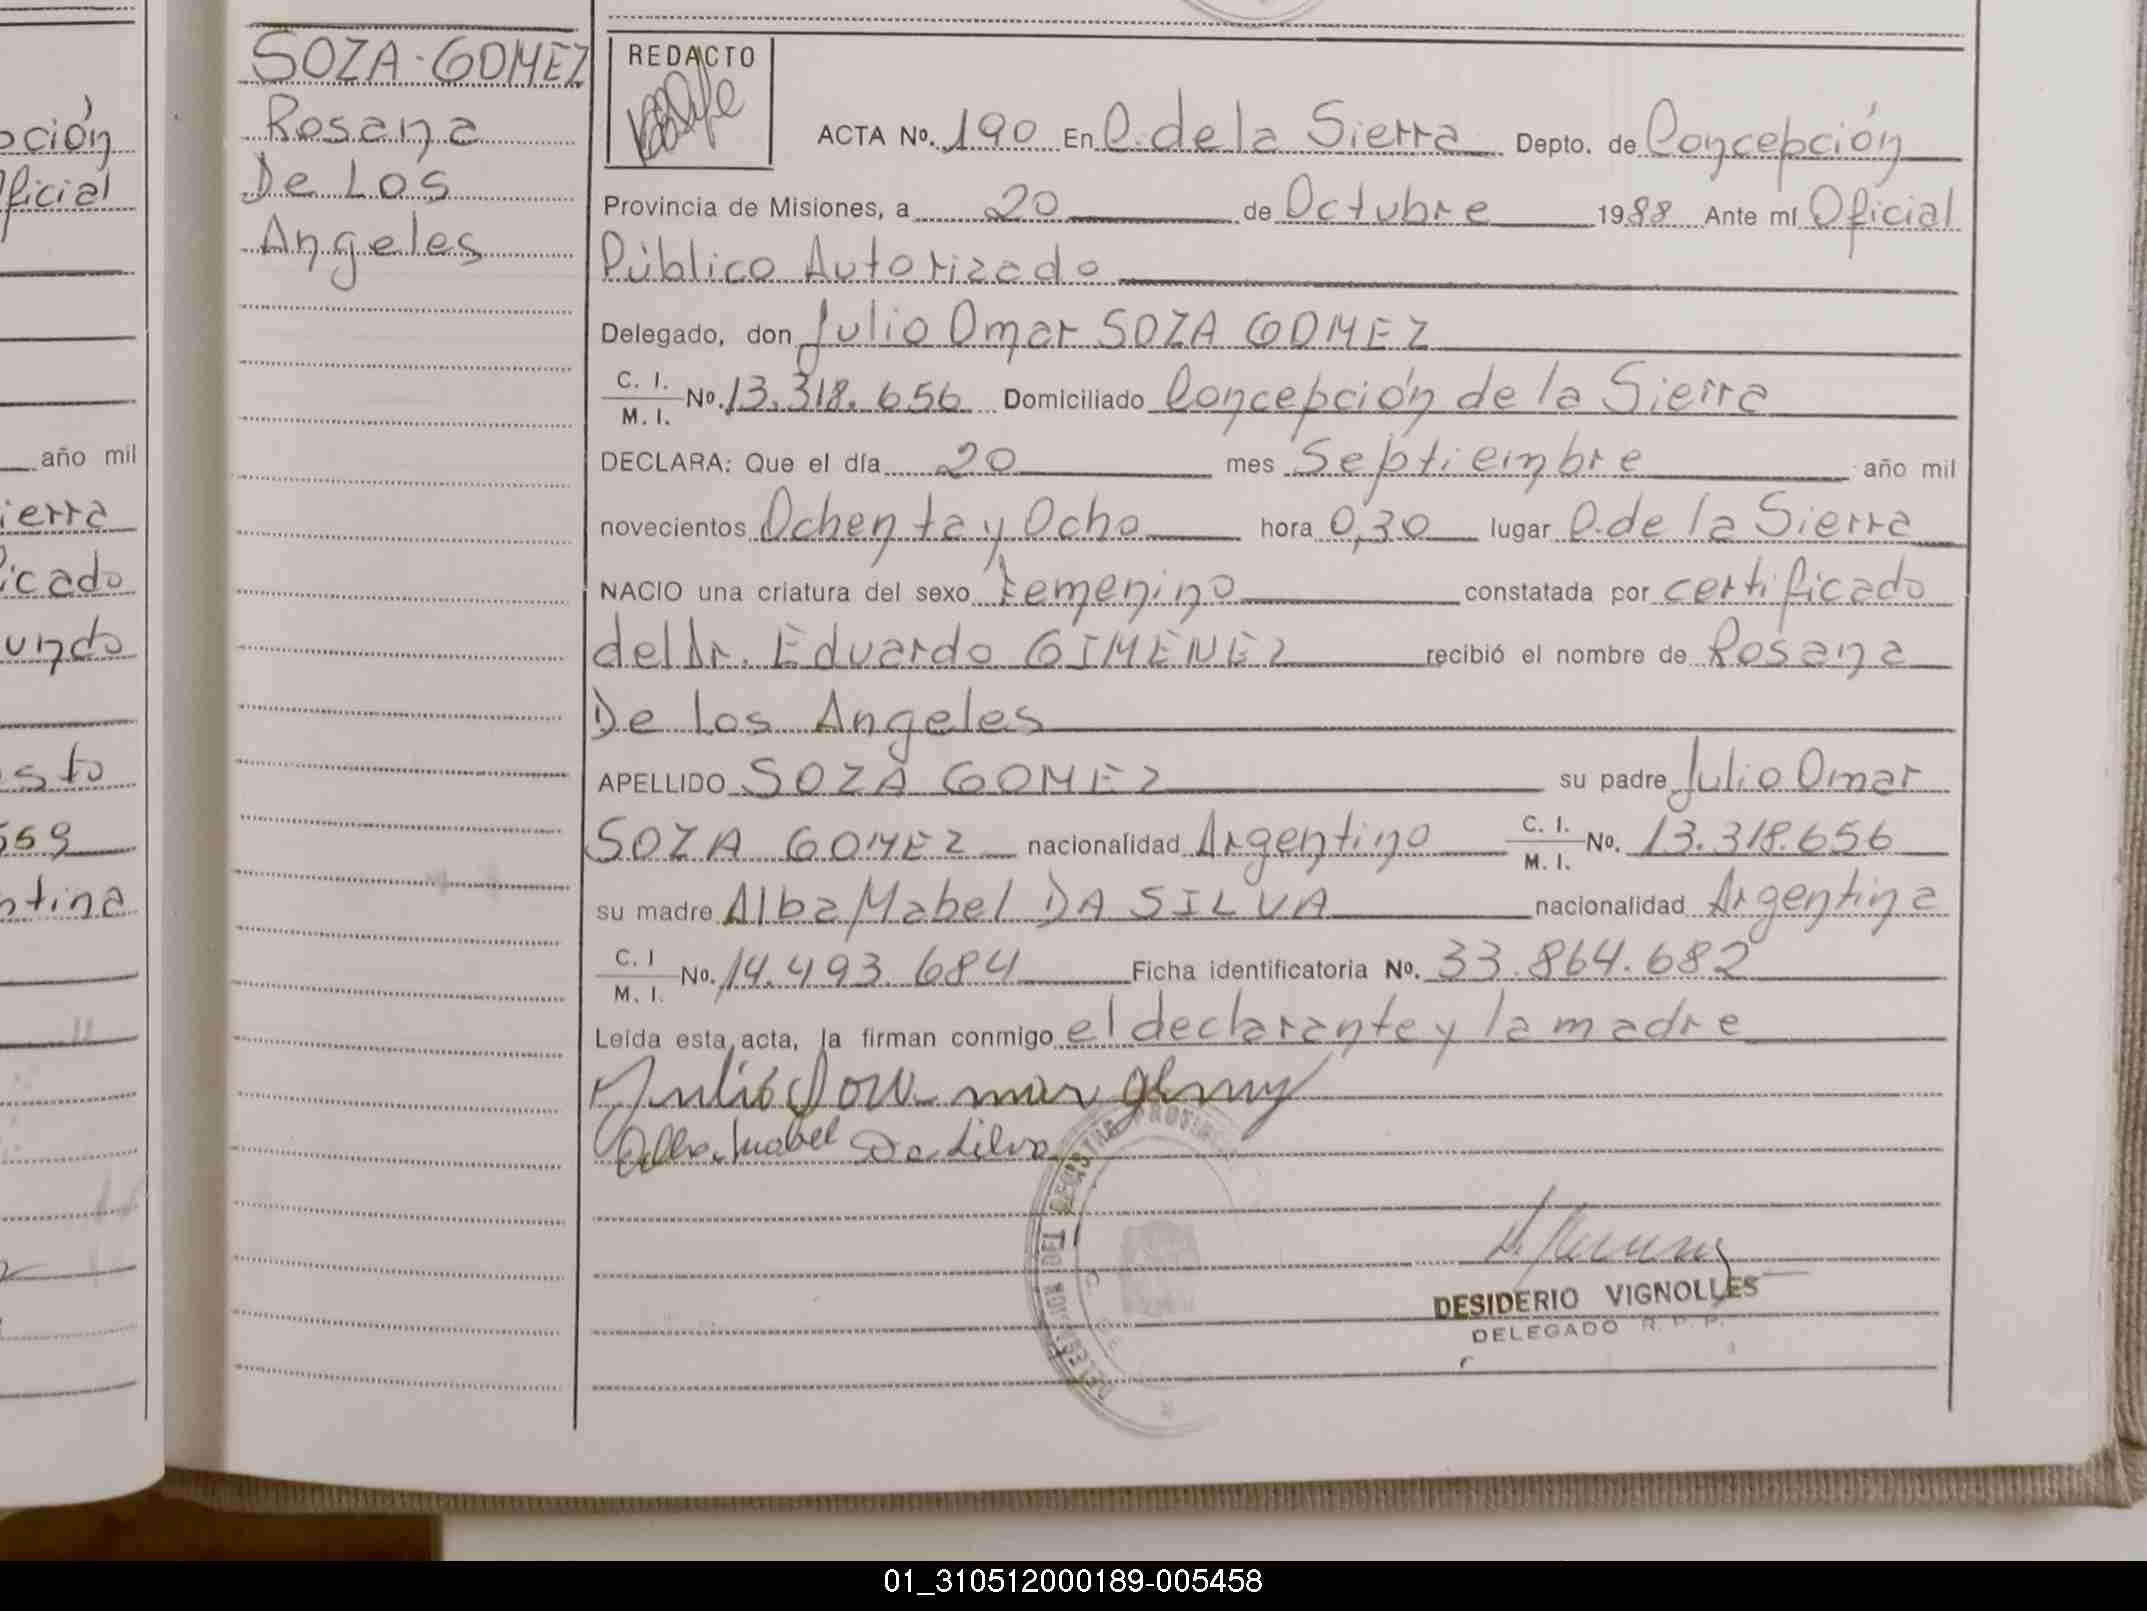 SOZA-GOMEZ
Rosana
De Los
Angeles
REDACTO
ACTA Nº. 190 En C. de la Sierra Depto. de Concepción
Provincia de Misiones, a 20 de Octubre 1988 Ante mí Oficial
Público Autorizado
Delegado, don Julio Omar SOZA GOMEZ
C. I. M. I. Nº. 13.318.656 Domiciliado Concepción de la Sierra
DECLARA: Que el día 20 mes Septiembre año mil
novecientos Ochenta y Ocho hora 0,30 lugar C. de la Sierra
NACIO una criatura del sexo Femenino constatada por certificado
del Dr. Eduardo GIMENEZ recibió el nombre de Rosana
De Los Angeles
APELLIDO SOZA GOMEZ su padre Julio Omar
SOZA GOMEZ nacionalidad Argentino C. I. M. I. Nº. 13.318.656
su madre Alba Mabel DA SILVA nacionalidad Argentina
C. I M. I. Nº. 14.493.684 Ficha identificatoria Nº. 33.864.682
Leída esta acta, la firman conmigo el declarante y la madre
Alba Mabel Da Silva
DESIDERIO VIGNOLLES
DELEGADO R. P. P.
pción
ficial
año mil
ierra
icado
undo
sto
569
ntina
01_310512000189-005458